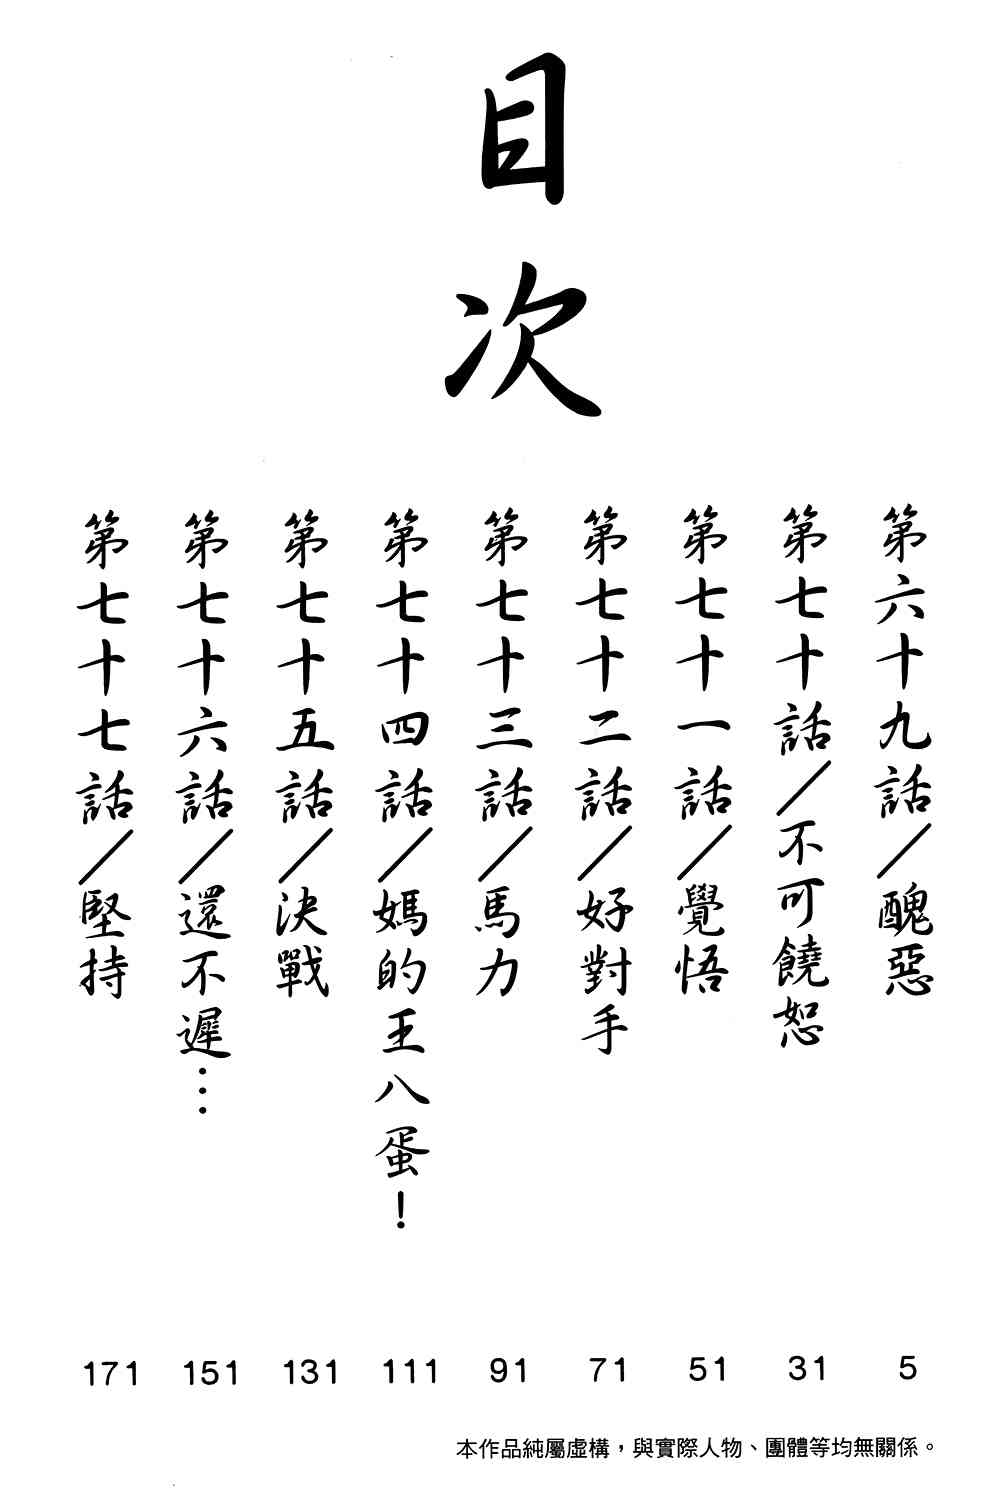 目次
第六十九話／醜惡
5
第七十話／不可饒恕
31
第七十一話／覺悟
51
第七十二話／好對手
71
第七十三話／馬力
91
第七十四話／媽的王八蛋！
111
第七十五話／決戰
131
第七十六話／還不遲…
151
第七十七話／堅持
171
本作品純屬虛構，與實際人物、團體等均無關係。